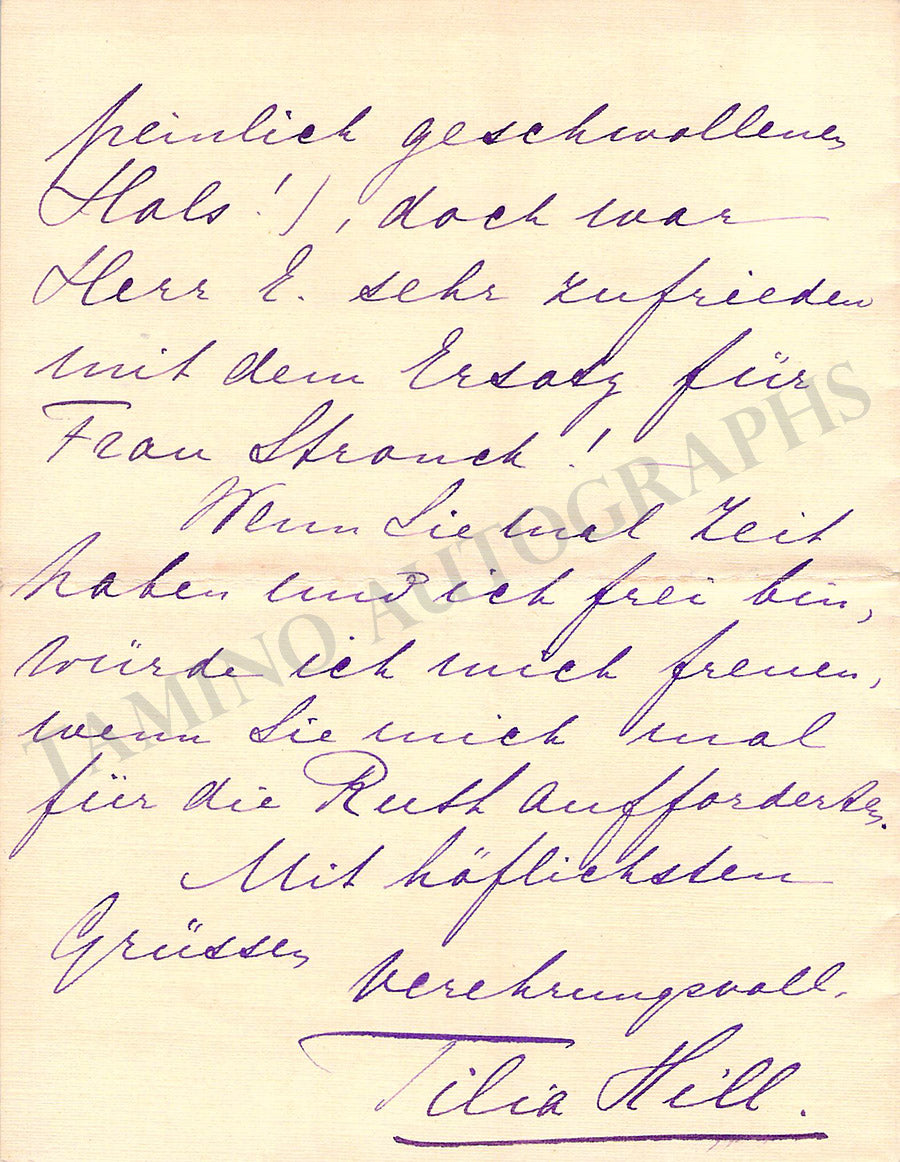 peinlich geschwollenen
Hals!), doch war
Herr E. sehr zufrieden
mit dem Ersatz für
Frau Strauch!
Wenn Sie mal Zeit
haben und ich frei bin,
würde ich mich freuen,
wenn Sie mich mal
für die Ruth aufforderten.
Mit höflichsten
Grüssen
verehrungsvoll.
Tilia Hill.
TAMINO AUTOGRAPHS